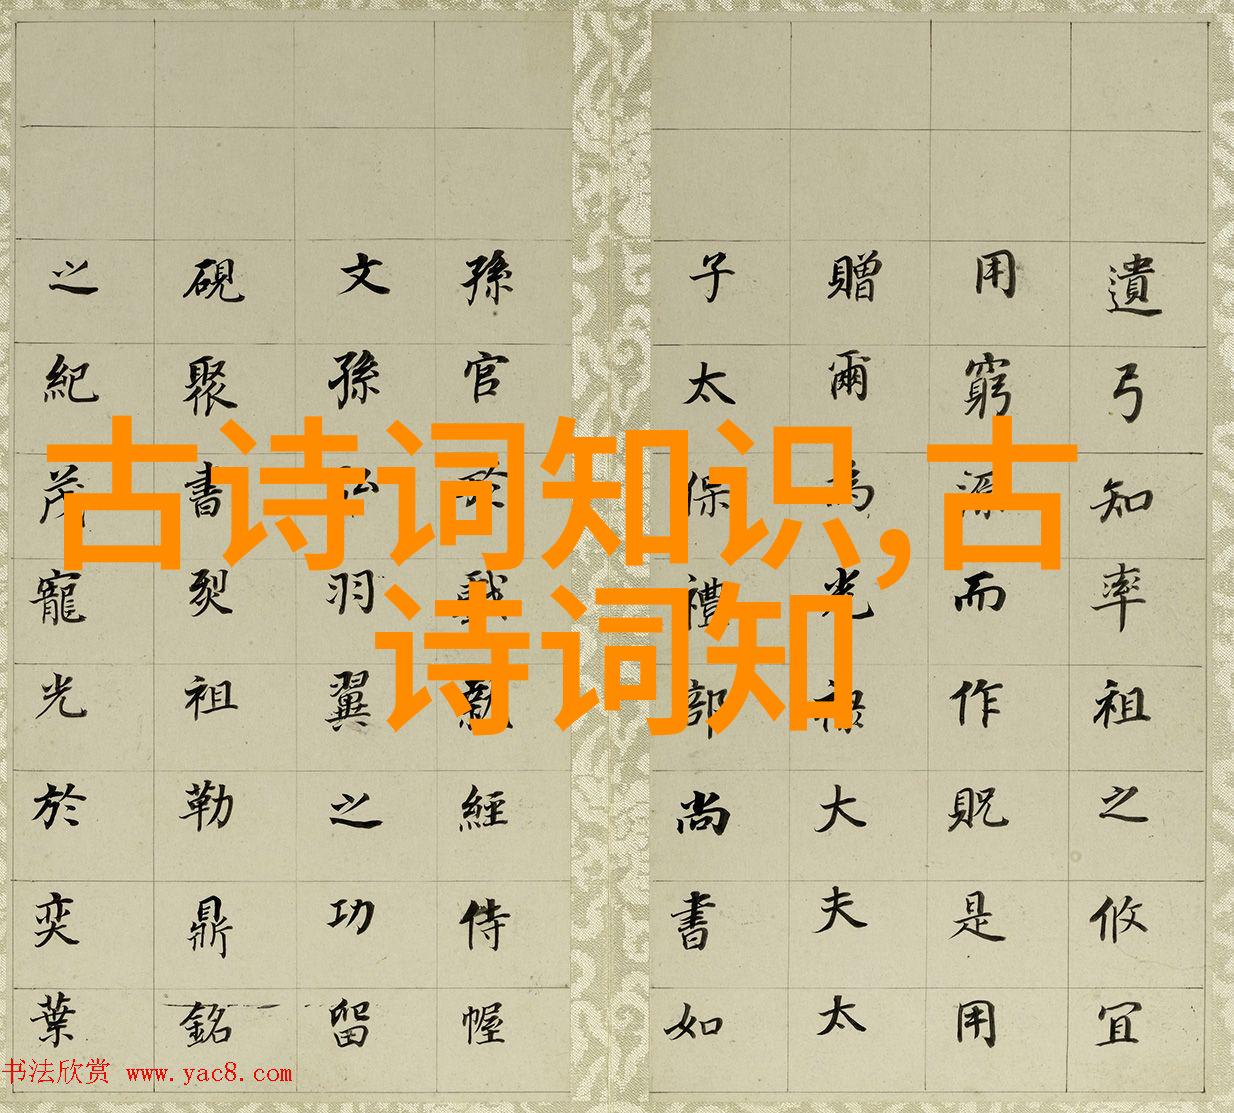 遺弓知率祖之攸冝
用窮源而作貺是用
贈爾為光祿大夫太
子太保禮部尚書如
孫官於戲獻經侍幄
文孫弘羽翼之功留
硯聚書烈祖勒鼎銘
之紀茂寵光於奕葉
古诗词知识,古
诗词知
书法欣赏 www.yac8.com